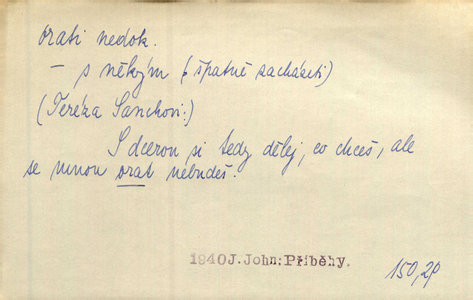 orati nedok.
– s někým (špatně zacházeti)
(Teréza Sanchovi:)
S dcerou si tedy dělej, co chceš, ale
se mnou orat nebudeš.
1940 J. John: Příběhy.
150, 29